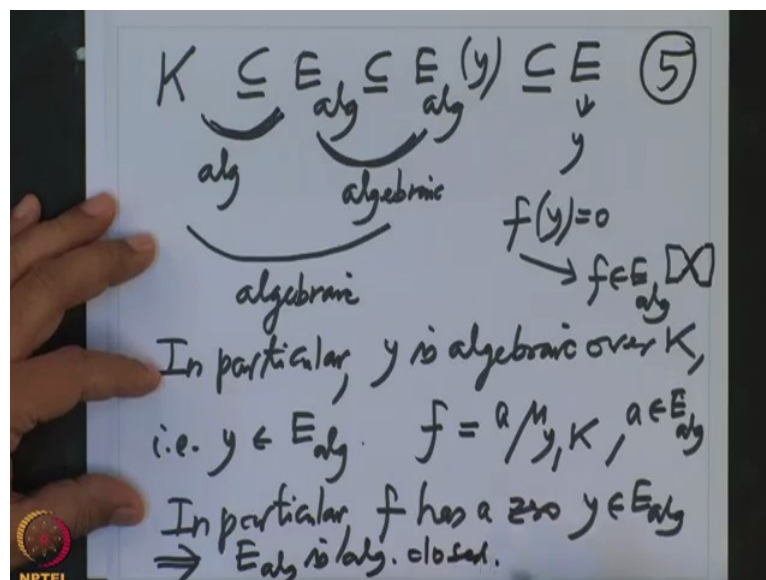 K ⊆ E_alg ⊆ E_alg(y) ⊆ E ⑤
alg algebraic ↓ y
f(y)=0
algebraic → f ∈ E_alg[X]
In particular, y is algebraic over K,
i.e. y ∈ E_alg. f = a μ_y,K, a ∈ E_alg
In particular, f has a zero y ∈ E_alg
⇒ E_alg is alg. closed.
NPTEL